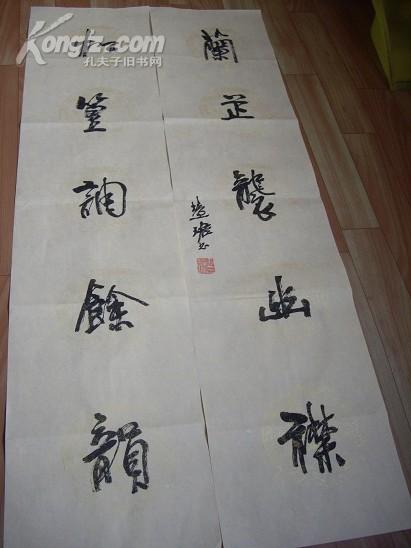 Kongfz.com
孔夫子旧书网
蘭芷襲幽襟
松篁調餘韻